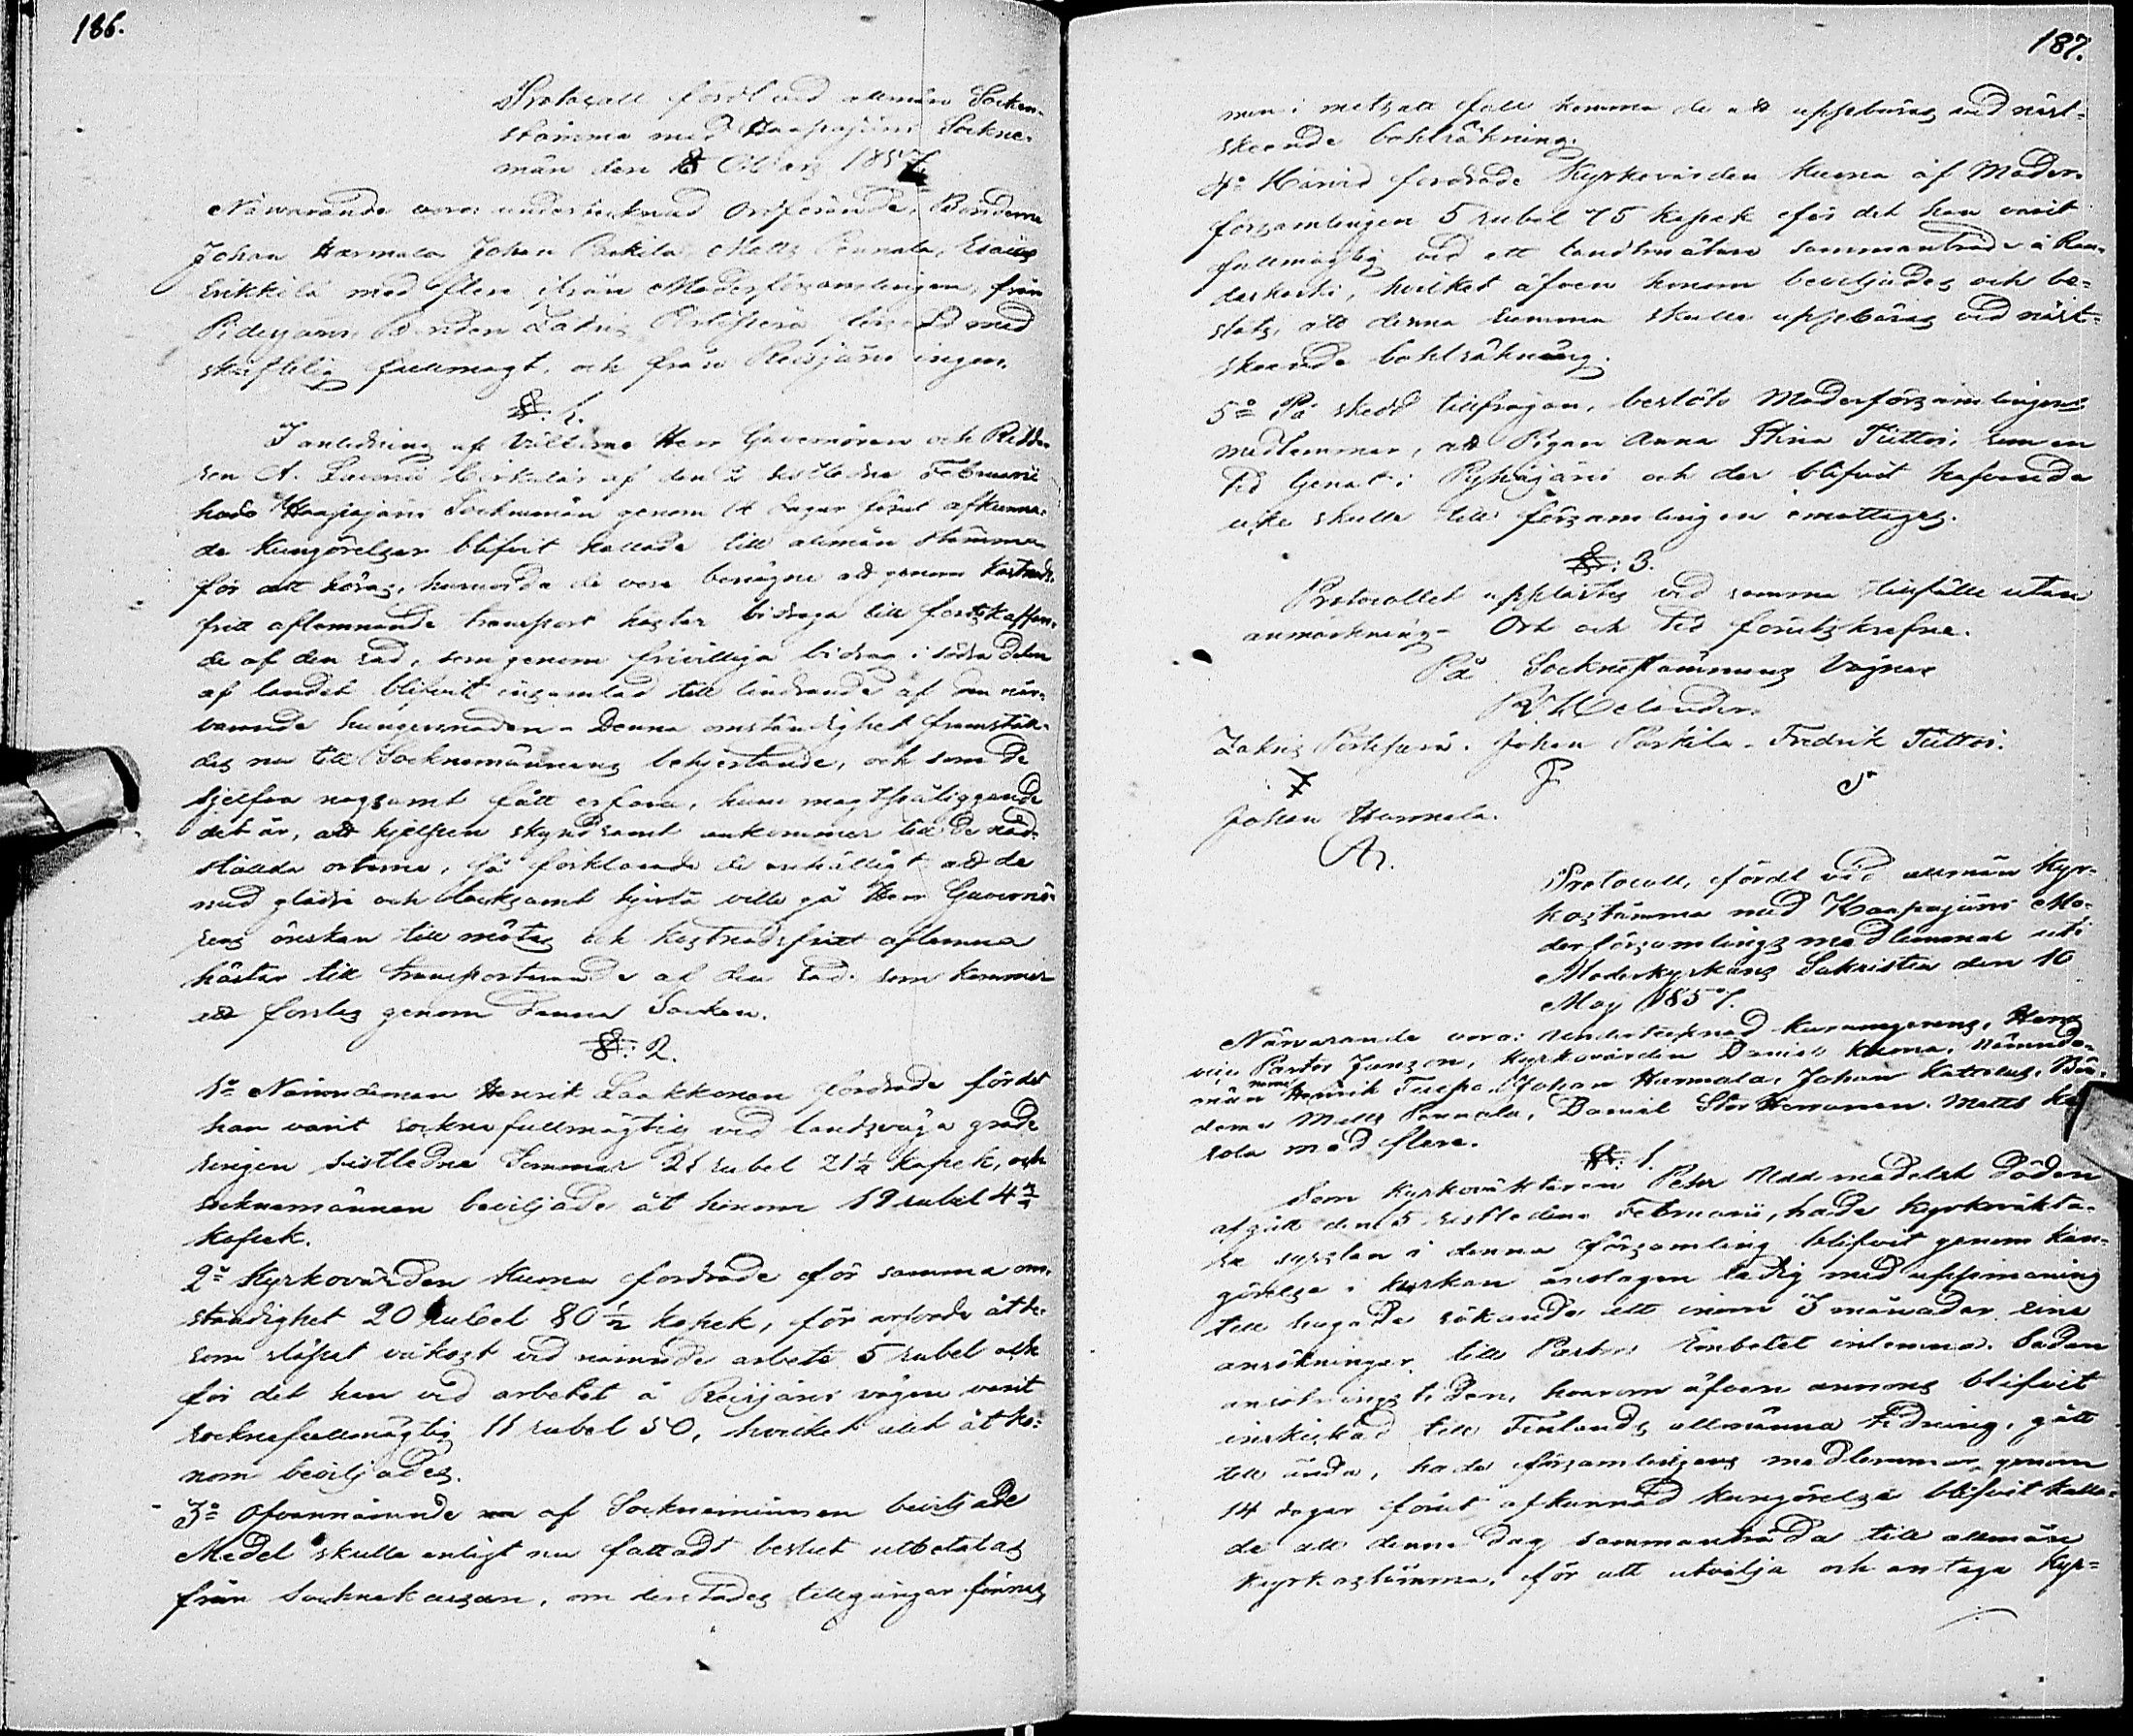 186.
Protocoll fördt vid allmän Socken-
stämma med Haapajärvi Sockne-
män den 8 Mars 1857.
Närvarande voro: undertecknad Ordförande, Bönderne
Johan Harmala Johan Parkila, Matts Pennala, Esaias
Erikkilä med flere ifrån Moderförsamlingen, från
Pidisjärvi Bonden Zakris Pertuperä försedd med
skriftelig fullmagt, och från Reisjärvi ingen.
§. 1.
I anledning af Välborne Herr Guvernören och Ridda-
ren A. Cirkulär af den 2 sistledne Februarii
hade Haapajärvi Socknemän genom 14 dagar förut afkunna-
de kungörelser blifvit kallade till allmän stämma
för att höras, huruvida de vore benägne att genom kostnads-
fritt aflemnande transport hästar bidraga till fortskaffan-
de af den säd, som genom frivilliga bidrag i södra delen
af landet blifvit insamlad till lindrande af den när-
varande hungersnöden. Denna omständighet framstäl-
des nu till Socknemännens behjertande, och som de
sjelfva nogsamt fått erfara, huru magtpåliggande
det är, att hjelpen skyndsamt ankommer till de nöd-
ställda orterne, så förklarade de enhälligt att de
med glädje och tacksamt hjerta ville gå Herr Guvernö-
rens önskan till mötes och kostnadsfritt aflemna
hästar till transporterande af den säd som kommer
att forslas genom denna Socken.
§: 2.
1o Nämndeman Henrik Laakkonen fordrade för det
han varit socknefullmägtig vid landsväga grade
ringen sistledne Sommar 21 rubel 21 1/4 kopek, och
socknemännen beviljade åt honom 19 rubel 4 3/4
kopek.
2o Kyrkovärden Kuona fordrade för samma om-
ständighet 20 Rubel 80 1/2 kopek, för arfvode åt
som släpat vid nämnde arbete 5 rubel och
för det han vid arbetet å Reisjärvi vägen varit
socknefullmägtig 11 rubel 50, hvilket allt åt ho-
nom beviljades.
3o Ofvannämnde af Socknemännen beviljade
Medel skulle enligt nu fattadt beslut utbetalas
från Socknekassan, om derstädes tillgångar finnes,
187.
men i motsatt fall komma de att uppbäras vid näst-
skeende bohlräkning.
4o Härvid fordrade Kyrkovärden Kuona af Moder-
församlingen 5 rubel 75 kopek för det han varit
fullmägtig vid ett landtmätare sammanträde å Ran-
daskoski, hvilket äfven honom beviljades och be-
slöts, att denna summa skulle uppbäras vid näst-
skeende bohlräkning.
5o På skedd tillfrågan, beslöto Moderförsamlingens
medlemmar, att Pigan Anna Stina Tuttoi, som en
tid tjenat i Pyhäjärvi och der blifvit hafvande
icke skulle till församlingen emottages.
§: 3.
Protocollet upplästes vid samma tillfälle utan
anmärkning. Ort och tid förutskrefne.
På Socknestämmans Vägnar
Melander.
Zakris Pertuperä. Johan Parkila. Fredrik Tuttoi.
Johan Harmala.
Protocoll, fördt vid allmän Kyr-
kostämma med Haapajärvi Mo-
derförsamlings medlemmar uti
Moderkyrkans Sakristia den 10
May 1857.
Närvarande voro: undertecknad Herr
Pastor Janzon, Kyrkovärden Daniel Kuona, Nämnde-
män Henrik Tuepo Johan Harmala, Johan Kattelus, Bön-
derne Matts Pennala, Daniel Stor Hemanen. Matts
sola med flere.
§: 1.
Som Kyrkovaktaren Petr Udd medelst döden
afgått den 5 sistledne Februarii, hade Kyrkovakta-
re sysslan i denna församling blifvit genom kun-
görelse i kyrkan anslagen ledig med uppmaning
till hugade sökande att inom 3 månader sine
ansökningar till Pastors Embetet inlemna. Sedan
ansökningstiden, hvarom äfven annons blifvit
inskickad till Finlands allmänna tidning, gått
till ända, hade församlingens medlemmar genom
14 dagar förut afkunnad kungörelse blifvit kalla-
de att denna dag sammanträda till allmän
kyrkostämma, för att utvälja och antaga Kyr-